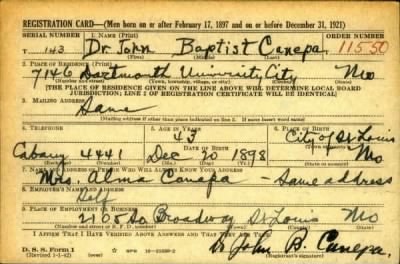 REGISTRATION CARD—(Men born on or after February 17, 1897 and on or before December 31, 1921)
SERIAL NUMBER 1. NAME (Print) ORDER NUMBER (Print)
T 143 Dr John Baptist Canepa 11550
(First) (Middle) (Last)
2. PLACE OF RESIDENCE (Print)
7146 Dartmouth University City Mo
(Number and street) (Town, township, village, or city) (County) (State)
[THE PLACE OF RESIDENCE GIVEN ON THE LINE ABOVE WILL DETERMINE LOCAL BOARD
JURISDICTION; LINE 2 OF REGISTRATION CERTIFICATE WILL BE IDENTICAL]
3. MAILING ADDRESS
Same
[Mailing address if other than place indicated on line 2. If same insert word same]
4. TELEPHONE 5. AGE IN YEARS 6. PLACE OF BIRTH
43 City of St Louis
Cabany 4441 DATE OF BIRTH (Town or county)
Dec 20 1898 Mo
(Exchange) (Number) (Mo.) (Day) (Yr.) (State or country)
7. NAME AND ADDRESS OF PERSON WHO WILL ALWAYS KNOW YOUR ADDRESS
Mrs. Alma Canepa — Same address
8. EMPLOYER'S NAME AND ADDRESS
Self
9. PLACE OF EMPLOYMENT OR BUSINESS
2105 So Broadway St Louis Mo
(Number and street or R. F. D. number) (Town) (County) (State)
I AFFIRM THAT I HAVE VERIFIED ABOVE ANSWERS AND THAT THEY ARE TRUE.
D. S. S. Form 1
(Revised 1-1-42)
Dr John B. Canepa